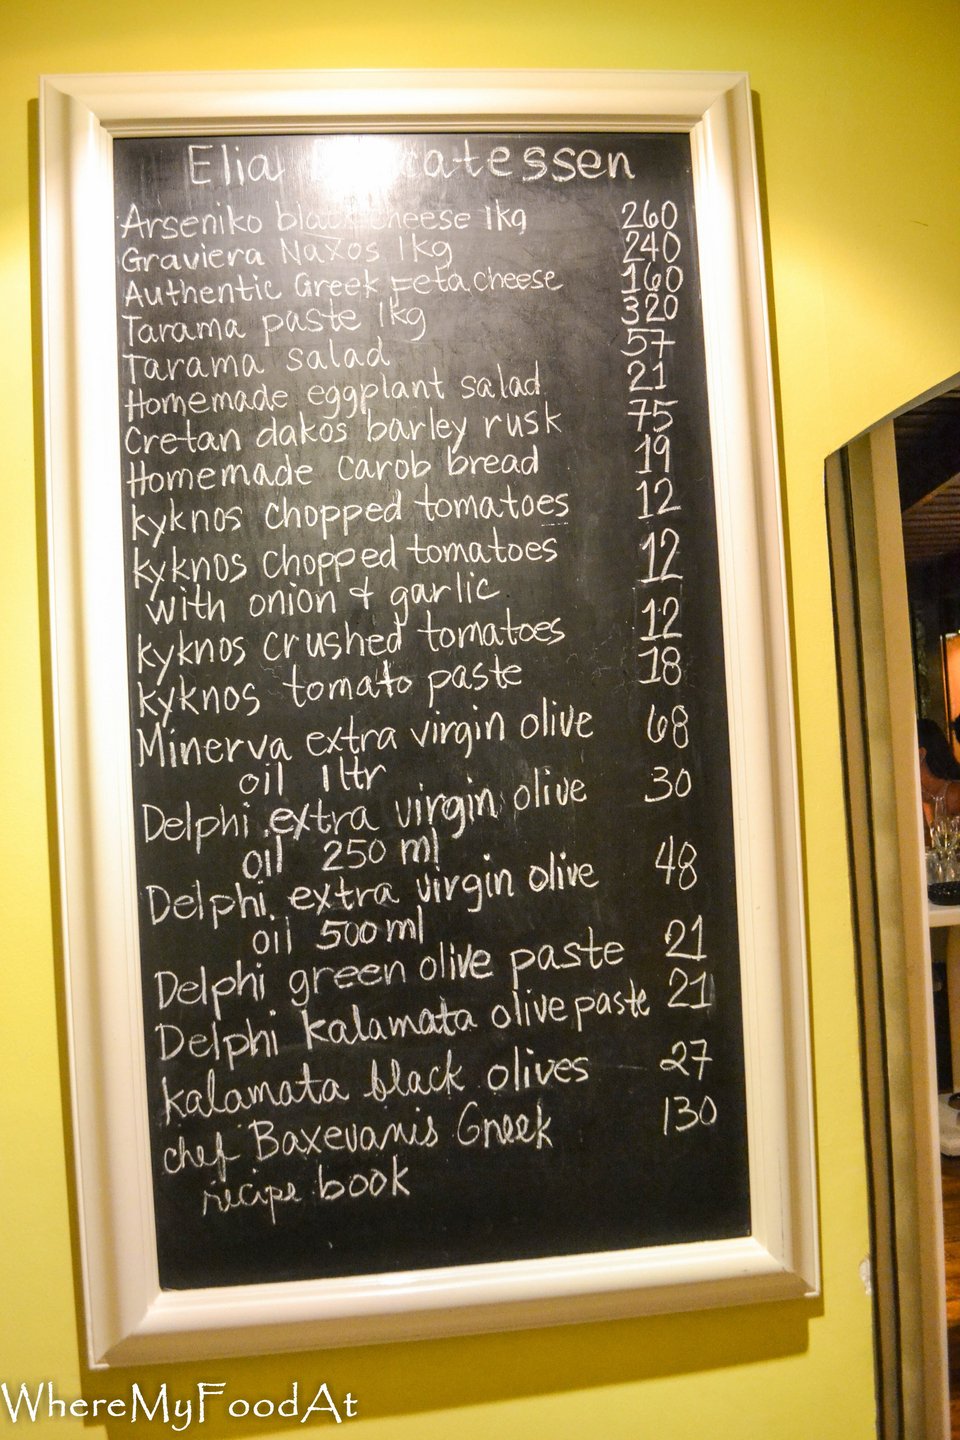 Elia
Arseniko black cheese 1kg 260
Graviera Naxos 1kg 240
Authentic Greek Feta cheese 160
Tarama paste 1kg 320
Tarama salad 57
Homemade eggplant salad 21
Cretan dakos barley rusk 75
Homemade carob bread 19
kyknos chopped tomatoes 12
kyknos chopped tomatoes 12
with onion & garlic
kyknos crushed tomatoes 12
kyknos tomato paste 18
Minerva extra virgin olive 68
oil 1 ltr
Delphi extra virgin olive 30
oil 250 ml
Delphi extra virgin olive 48
oil 500 ml
Delphi green olive paste 21
Delphi kalamata olive paste 21
kalamata black olives 27
chef Baxevanis Greek 130
recipe book
WhereMyFoodAt